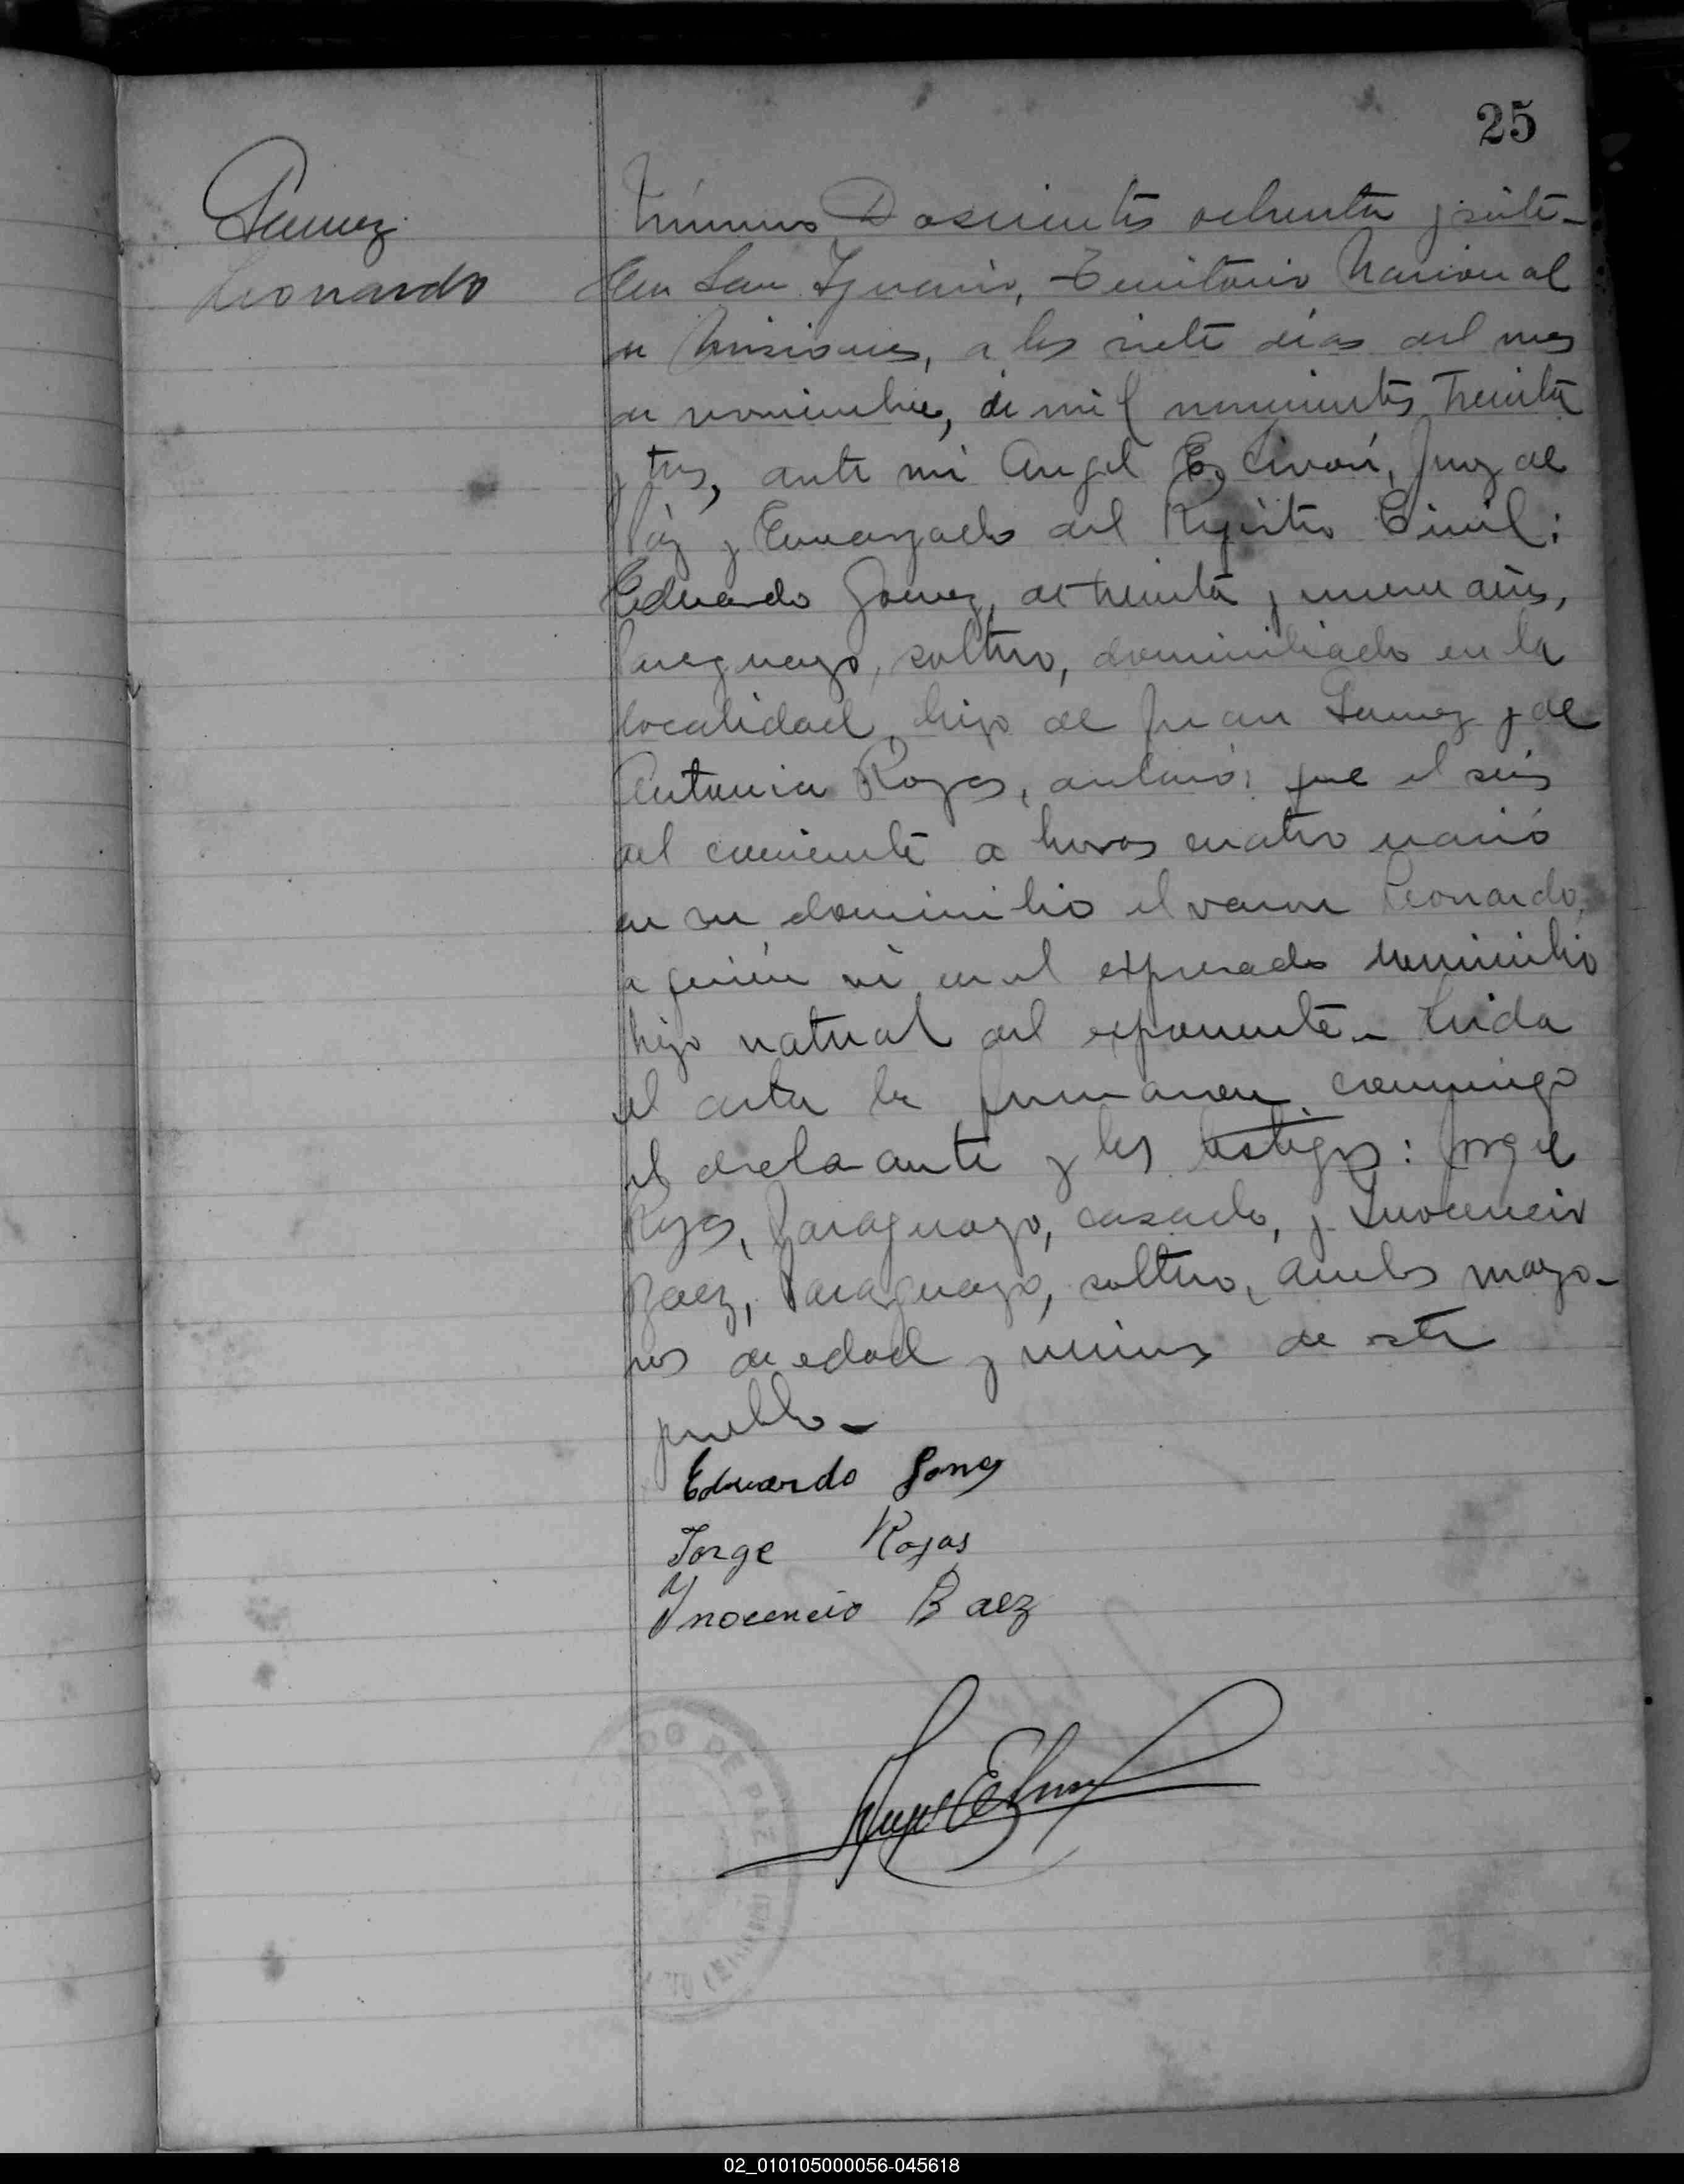 25
Gomez
Leonardo
Número Doscientos ochenta y siete-
En San Ignacio, Territorio Nacional
de Misiones, a los siete días del mes
de noviembre, de mil novecientos treinta
y tres, ante mi Angel E, Juez de
Páz y Encargado del Registro Civil:
Eduardo Gomez, de treinta y nueve años,
Paraguayo, soltero, domiciliado en la
localidad, hijo de Juan Gomez y de
Antonia Rojas, declaró: que el seis
del corriente a horas cuatro nació
en su domicilio el varon Leonardo,
a quién ví en el expresado domicilio
hijo natural del exponente_ Leida
el acta la firmaron conmigo
el declarante y los testigos: Jorge
Rojas, Paraguayo, casado, y Inocencio
Baez, Paraguayo, soltero, ambos mayo-
res de edad y vecinos de este
pueblo_
Eduardo Gomez
Jorge Rojas
Ynocencio Baez
DO DE PAZ